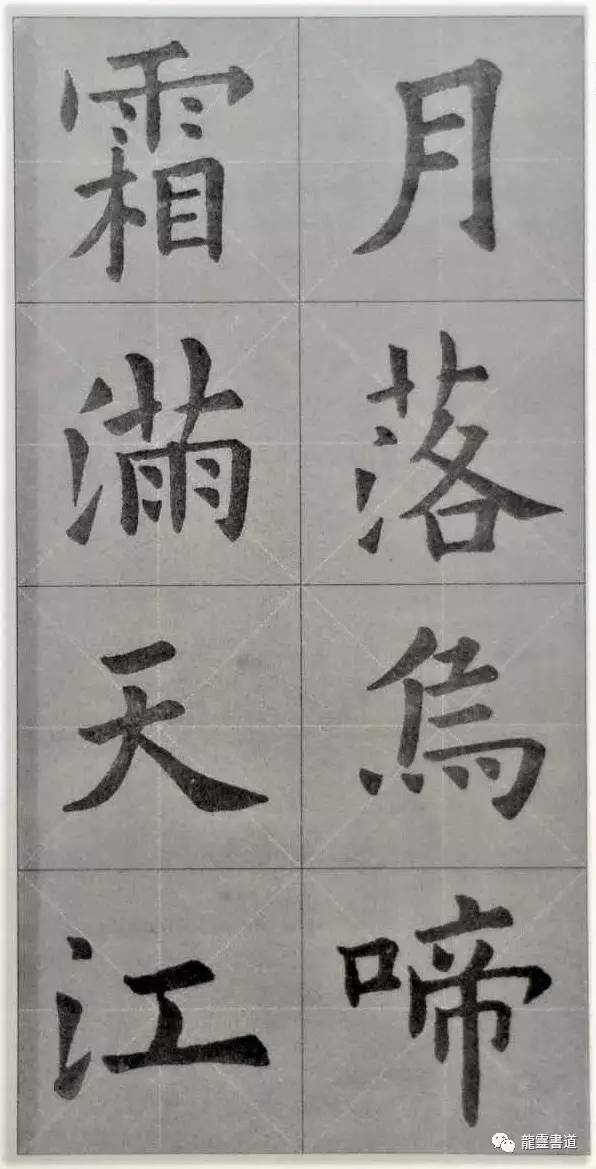 月落烏啼
霜滿天江
龍靈書道